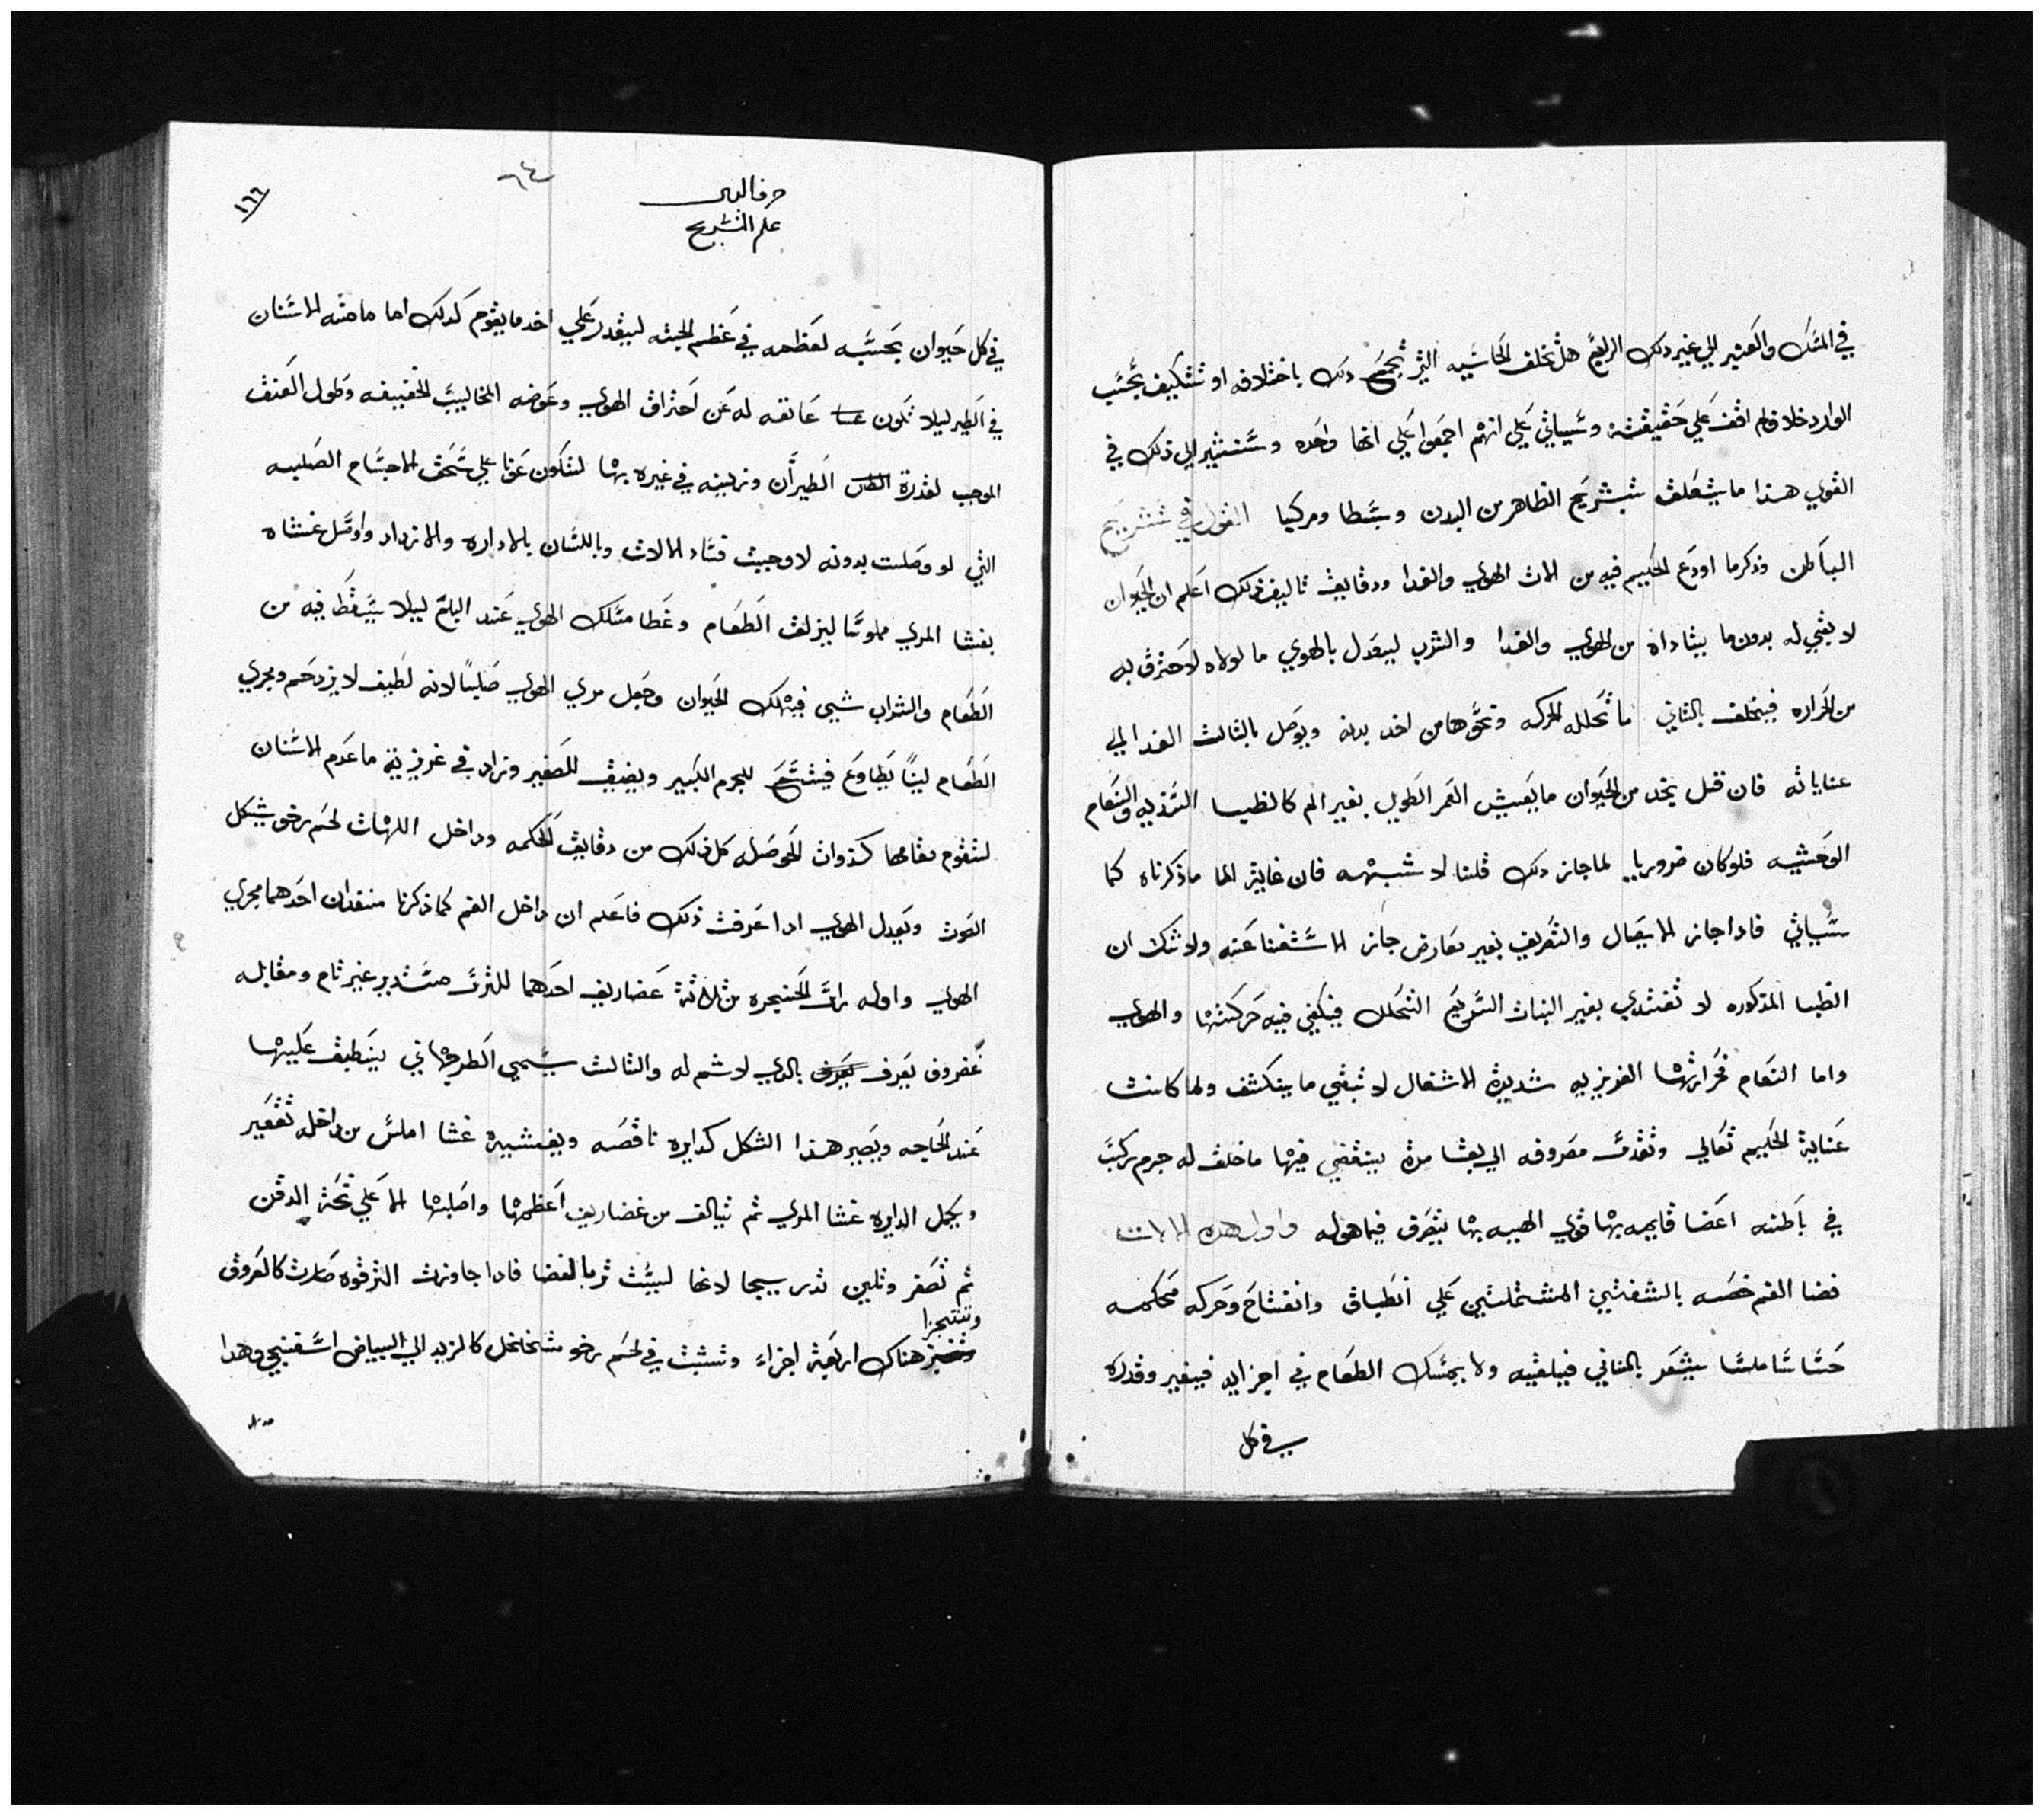 في المسك والعنبر الي غير ذلك الرابع هل تخلف الحاسيه التي تجمع دلك باختلافه او تتكيف بحسب
الوارد خلاف لم اقف علي حقيقته وسياتي علي انهم اجمعوا علي انها واحده وسنشير الي ذلك في
القوي هذا ما يتعلق بتشريح الظاهر من البدن وبسطا ومركبا القول في تشريح
الباطن وذكر ما اودع الحكيم فيه من الات الهوي والغدا ودقايق تاليف ذلك اعلم ان الحيوان
لا بقي له بدون ما يتاداه من الهوي والغدا والشرب ليعدل بالهوي ما لولاه لاحترق به
من الحراره فيخلف بالثاني ما تحلله الحركه ونحوها من اخد بدنه ويوصل بالثالث الغدا الي
عناياته فان قيل يحد من الحيوان ما يعيش العمر الطويل بغير الم كالظبا السنديه والنعام
الوحشيه فلو كان ضروريا لما جاز دلك قلنا لا شبهه فان غاية الما ما ذكرناه كما
سياتي فادا جاز الايصال والتصريف بغير معارض جاز الاستغنا عنه ولا شك ان
الظبا المذكوره لا تغتدي بغير النبات السريع التحلل فيكفي فيه حركتها والهوي
واما النعام فحرارتها الغريزيه شديدة الاشتعال لا تبقي ما يتكثف ولما كانت
عناية الحكيم تعالي وتقدست مصروفه الي بقا مدة ينقضي فيها ما خلف له جرم ركب
في باطنه اعضا قايمه بها قوي الهيه بها يتصرف فيما هو له واول هده الالات
فضا الفم خصه بالشفتين المشتملتين علي انطباق وانفتاح وحركه محكمه
حساسا ملسا يشعر بالمنافي فيلقيه ولا يمسك الطعام في اجزايه فيتغير وقدره
في كل
حرف التا
علم التشريح
٦٤
١٦٦
في كل حيوان بحسبه لعظمه في عظم الجثه ليقدر علي اخد ما يقوم كدلك اما ما منه الاسنان
في الطير ليلا تكون عايقه له عن احتراق الهوي وعوضه المخاليب الخفيفه وطول العنق
الموجب لقدرة الطيران وزينه في غيره بها لتكون عونا علي سحق الاجسام الصلبه
التي لو وصلت بدونه لاوجبت فساد الالات وباللسان بالاداره والازدراد واوصل غشاه
بغشا المري مملوسا ليزلق الطعام وغطا مسلك الهوي عند البلع ليلا يسقط فيه من
الطعام والشراب شيى فيهلك الحيوان وجعل مري الهوي صلبًا لانه لطيف لا يزدحم ومجري
الطعام لينًا يطاوع فيتسع للجرم الكبير ويضيق للصغير وزاد في غريزية ما عدم الاسنان
لتقوم مقامها كذوات الحوصله كل ذلك من دقايق الحكمه وداخل اللهات لحم رخو يشكل
الصوت ويعدل الهوي ادا عرفت ذلك فاعلم ان داخل الفم كما ذكرنا منفذان احدهما مجري
الهوي واوله راس الحنجره من ثلاثة غضاريف احدهما للترس مستدير غير تام ومقابله
غضروف يعرف بالدي لا اسم له والثالث يسمي الطرجهاني ينطبق عليها
عند الحاجه ويصير هذا الشكل كدايره ناقصه ويغشيه غشا املس من داخله تقعير
ويكمل الدايره غشا المري ثم تيالف من غضاريف اعظمها واصلبها الا علي تحت الدقن
ثم تصغر وتلين تدريجا لانها ليست ثم بالفضا فادا جاوزت الترقوه صارت كالعروق
وتتجزا
هناك اربعة اجزاء وتثبت في لحم رخو متخلخل كالزبد الي البياض اسفنجي وهدا